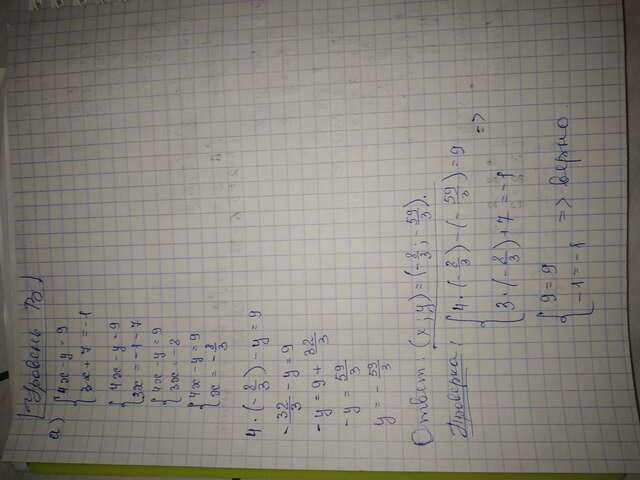 Уровень В
а) { 4x - y = 9
{ 3x + 7 = -1
{ 4x - y = 9
{ 3x = -1 - 7
{ 4x - y = 9
{ 3x = -8
{ 4x - y = 9
{ x = -8/3
4 · (-8/3) - y = 9
-32/3 - y = 9
-y = 9 + 32/3
-y = 59/3
y = -59/3
Ответ: (x; y) = (-8/3; -59/3).
Проверка: { 4 · (-8/3) - (-59/3) = 9
{ 3 · (-8/3) + 7 = -1 =>
{ 9 = 9
{ -1 = -1 => верно.